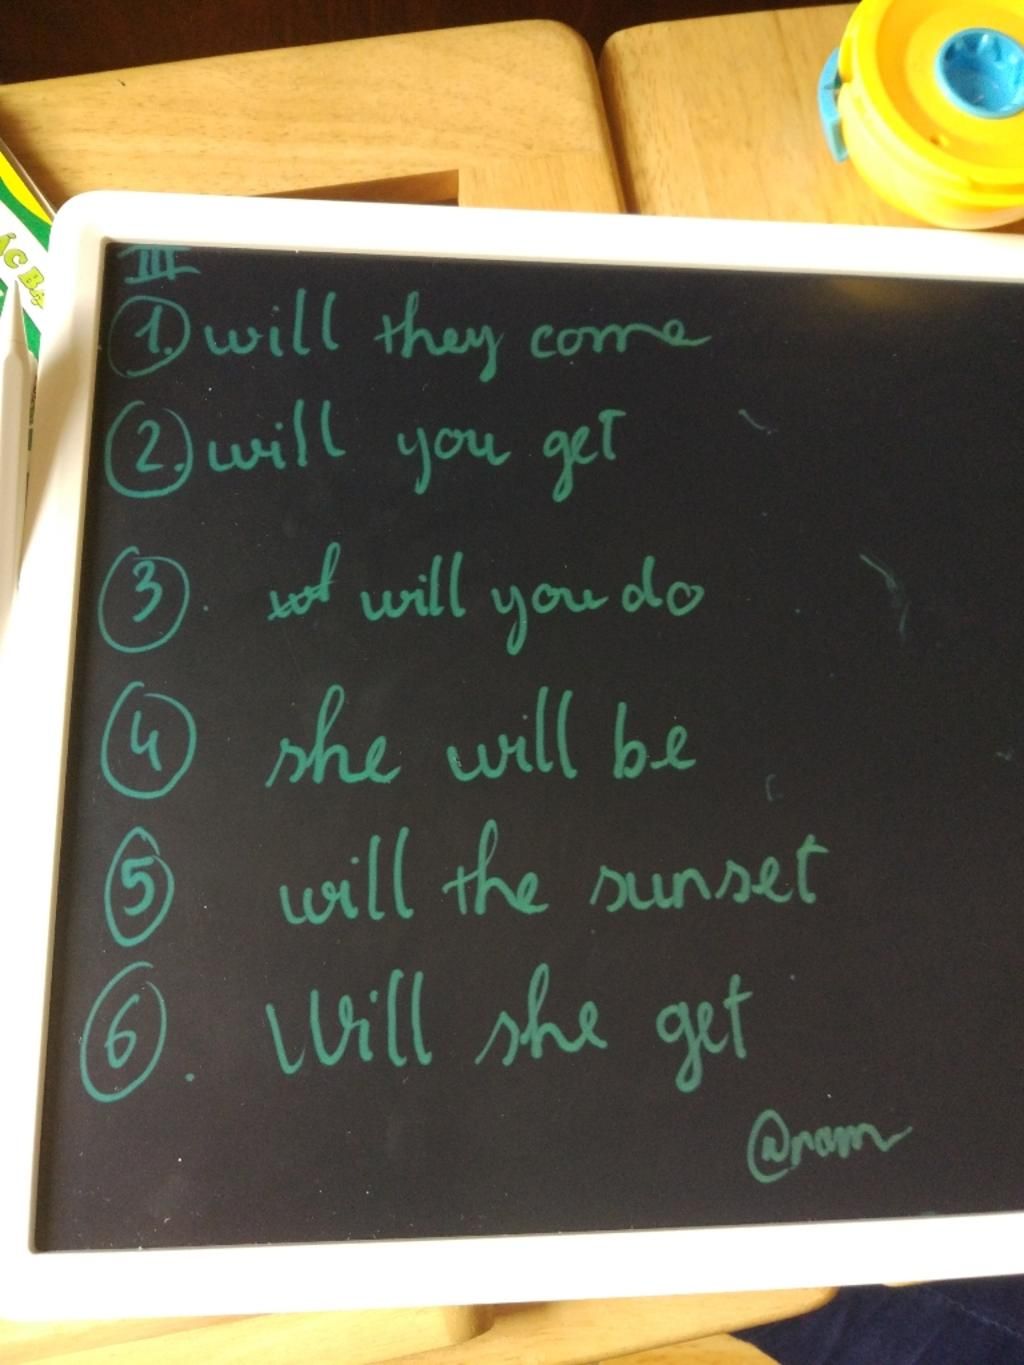 III
1. will they come
2. will you get
3. will you do
4 she will be
5 will the sunset
6. Will she get
@nam
ÁC B